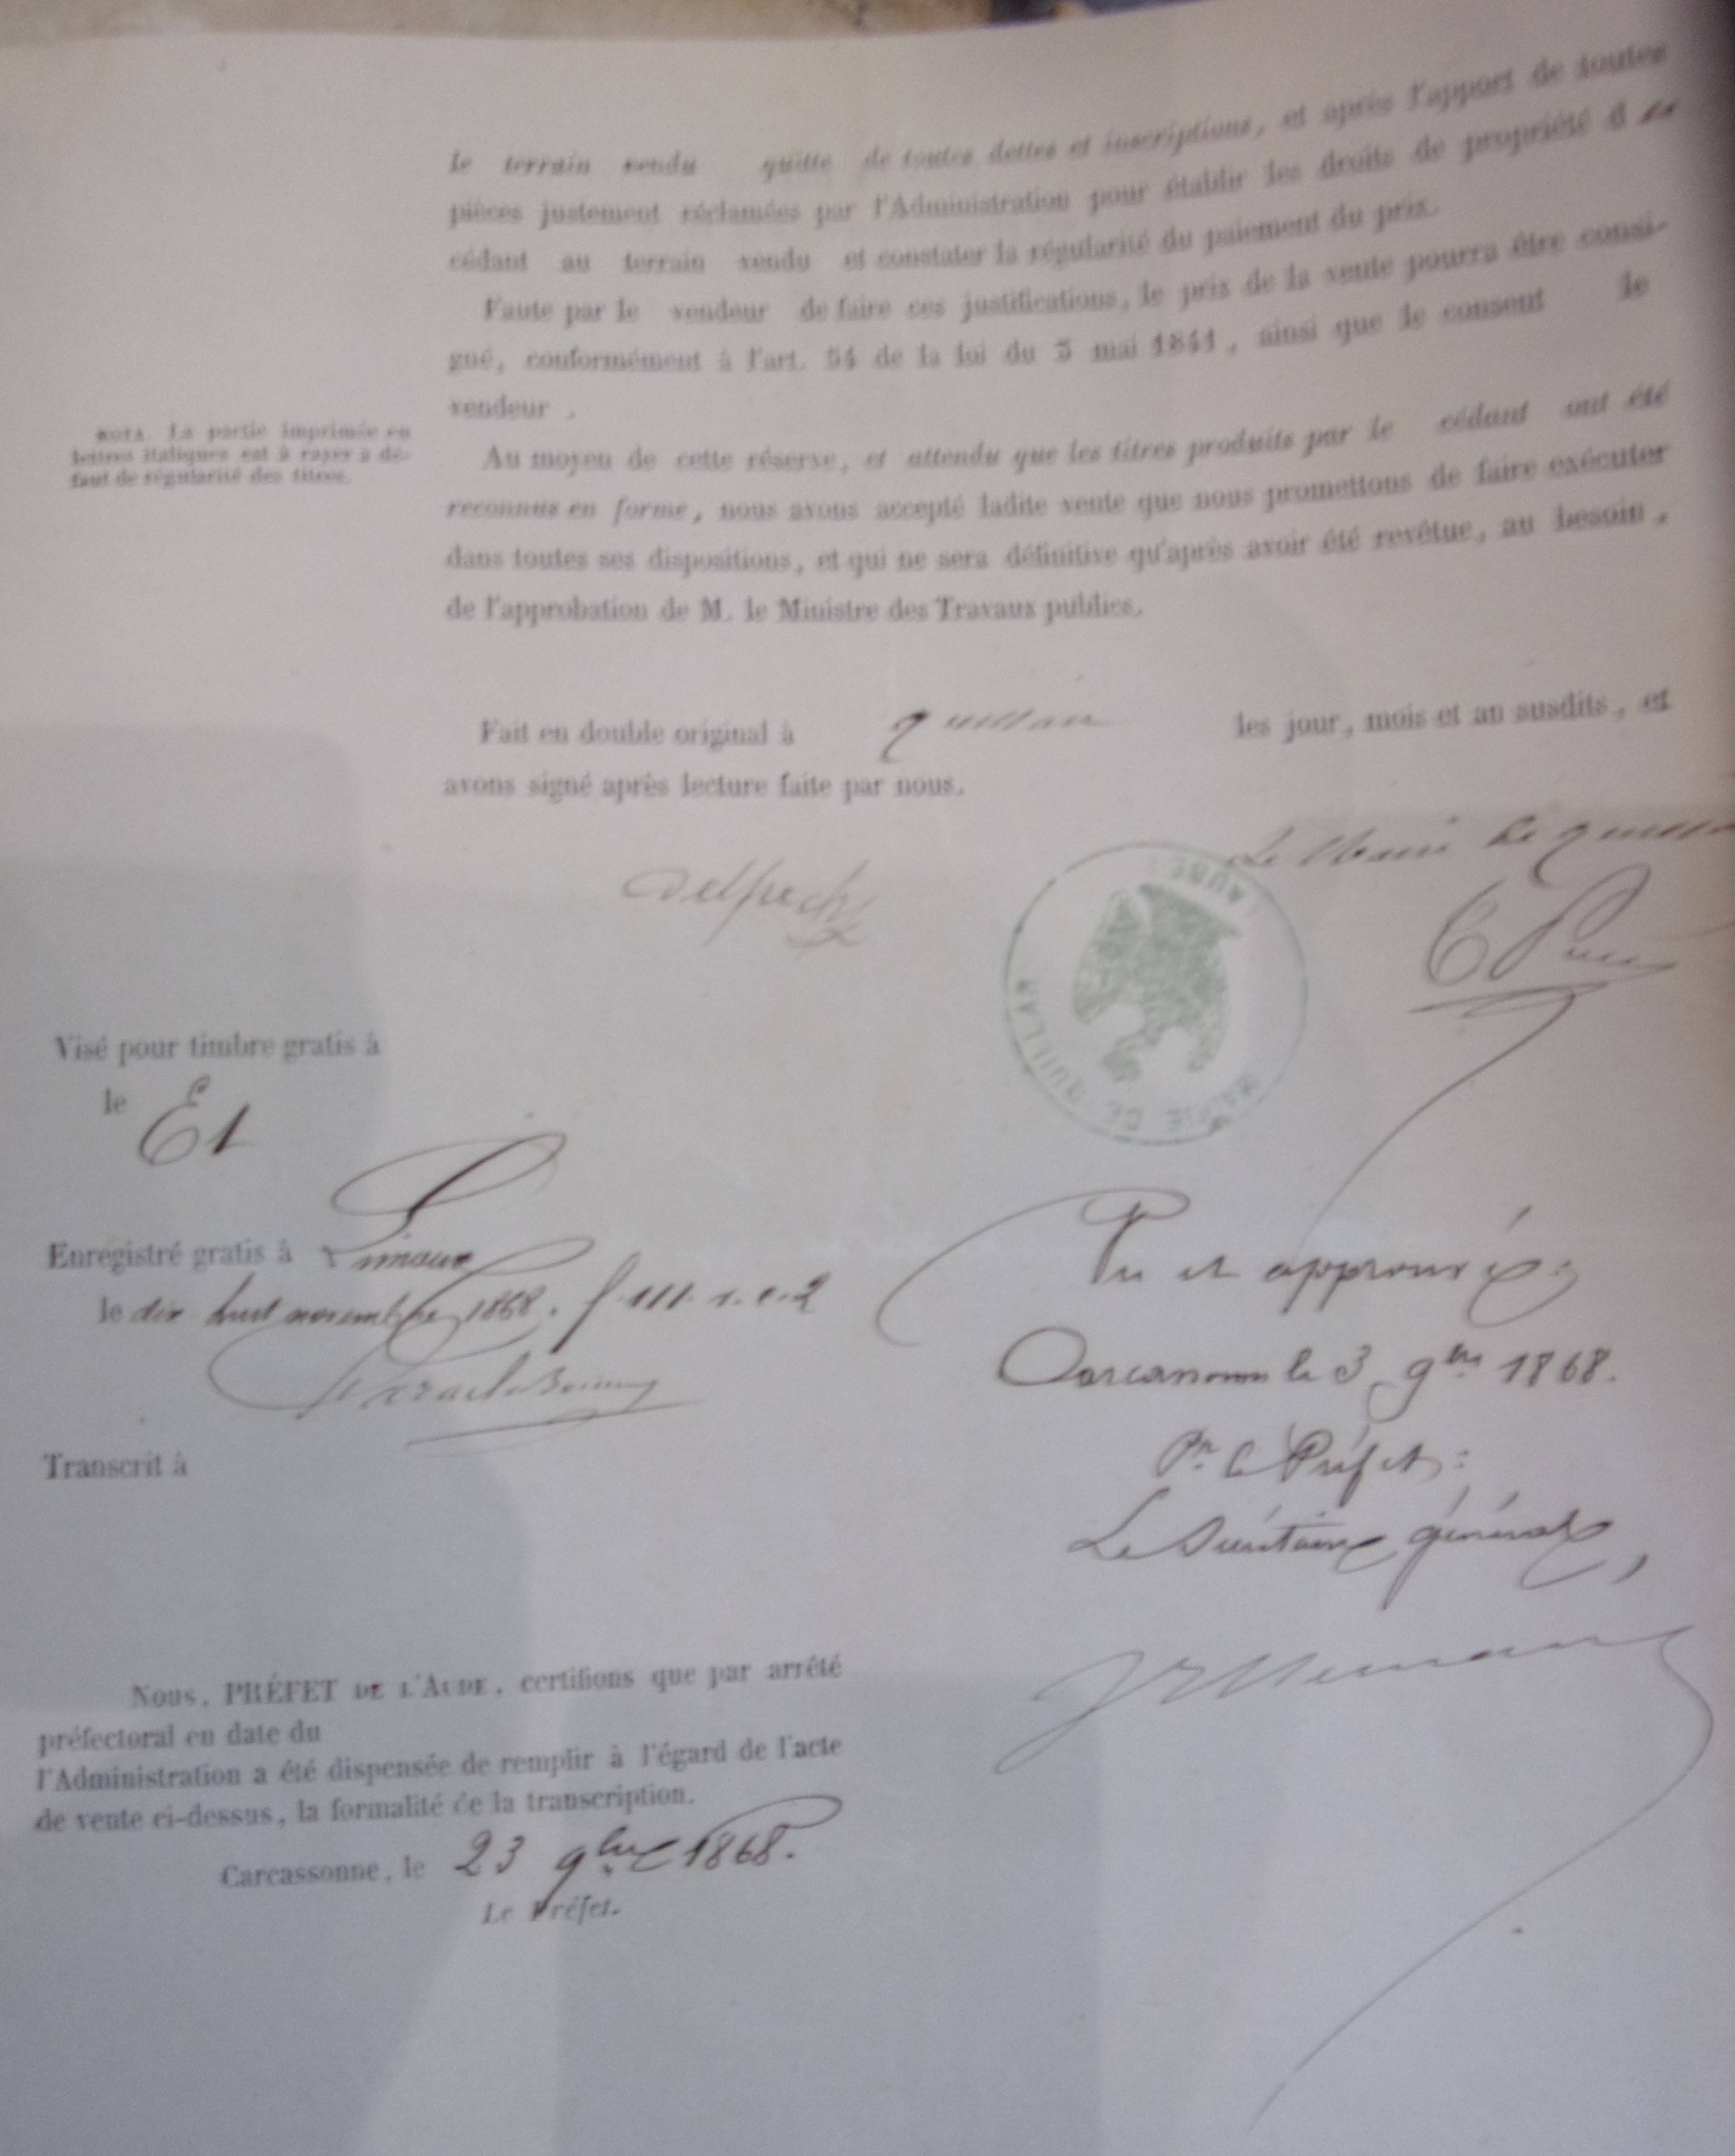 le terrain vendu quitte de toutes dettes et inscriptions, et après l'apport de toutes
pièces justement réclamées par l'Administration pour établir les droits de propriété d
cédant au terrain vendu et constater la régularité du paiement du prix.
Faute par le vendeur de faire ces justifications, le prix de la vente pourra être consi-
gné, conformément à l'art. 54 de la loi du 3 mai 1841, ainsi que le consent le
vendeur .
NOTA. La partie imprimée en
lettres italiques est à rayer à dé-
faut de régularité des titres.
Au moyen de cette réserve, et attendu que les titres produits par le cédant ont été
reconnus en forme, nous avons accepté ladite vente que nous promettons de faire exécuter
dans toutes ses dispositions, et qui ne sera définitive qu'après avoir été revêtue, au besoin,
de l'approbation de M. le Ministre des Travaux publics.
Fait en double original à quillan les jour, mois et an susdits, et
avons signé après lecture faite par nous.
Le Maire de quillan
Delpech
MAIRIE DE QUILLAN
(AUDE)
Visé pour timbre gratis à
le
Et
Enregistré gratis à Limoux
le dix huit novembre 1868. f. 111. r. c. 2
Vu et approuvé:
Carcassonne le 3 9bre 1868.
Pr le Préfet:
Le Secrétaire général,
Transcrit à
Nous, PRÉFET DE L'AUDE, certifions que par arrêté
préfectoral en date du
l'Administration a été dispensée de remplir à l'égard de l'acte
de vente ci-dessus, la formalité de la transcription.
Carcassonne, le 23 9bre 1868.
Le Préfet.